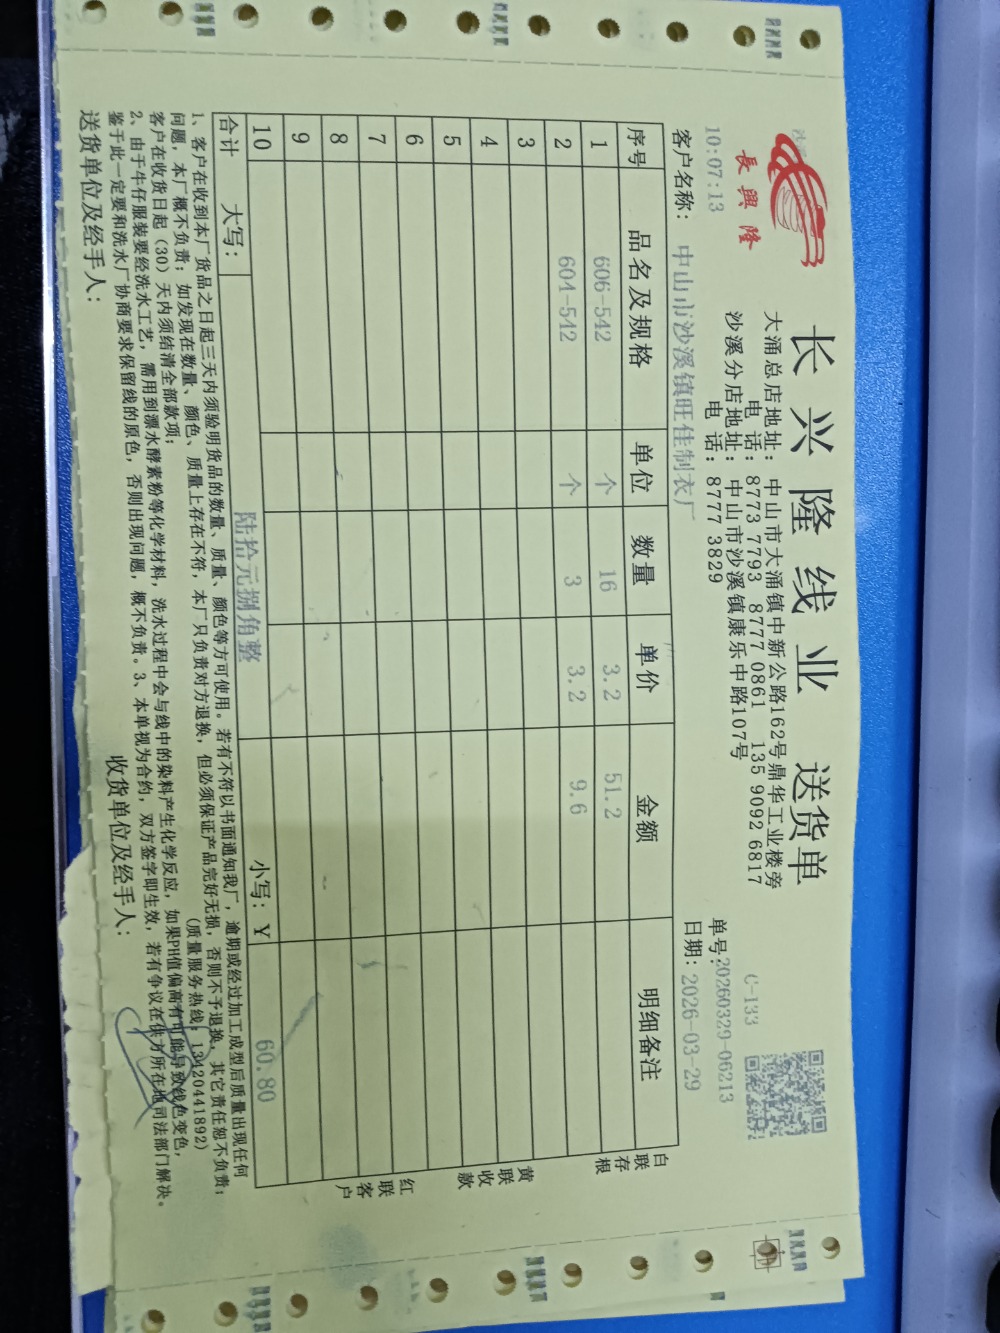 長興隆
长兴隆线业 送货单
C-133
大涌总店地址：中山市大涌镇中新公路162号鼎华工业楼旁
电 话：8773 7793 8777 0861 135 9092 6817
沙溪分店地址：中山市沙溪镇康乐中路107号
电 话：8777 3829
单号：20260329-06213
10:07:13
日期：2026-03-29
客户名称：中山市沙溪镇旺佳制衣厂
序号 品名及规格 单位 数量 单价 金额 明细备注
1 606-542 个 16 3.2 51.2
2 604-542 个 3 3.2 9.6
3
4
5
6
7
8
9
10
合计 大写：陆拾元捌角整 小写：Y 60.80
白联存根
黄联收款
红联客户
1、客户在收到本厂货品之日起三天内须验明货品的数量、质量、颜色等方可使用。若有不符以书面通知我厂，逾期或经过加工成型后质量出现任何
问题，本厂概不负责；如发现在数量、颜色、质量上存在不符，本厂只负责对方退换，但必须保证产品完好无损，否则不予退换，其它责任恕不负责；
客户在收货日起（30）天内须结清全部款项；
（质量服务热线：13420441892）
2、由于牛仔服装要经洗水工艺，需用到漂水酵素粉等化学材料，洗水过程中会与线中的染料产生化学反应，如果PH值偏高有可能导致线色变色，
鉴于此一定要和洗水厂协商要求保留线的原色，否则出现问题，概不负责。3、本单视为合约，双方签字即生效，若有争议在供方所在地司法部门解决。
送货单位及经手人：
收货单位及经手人：